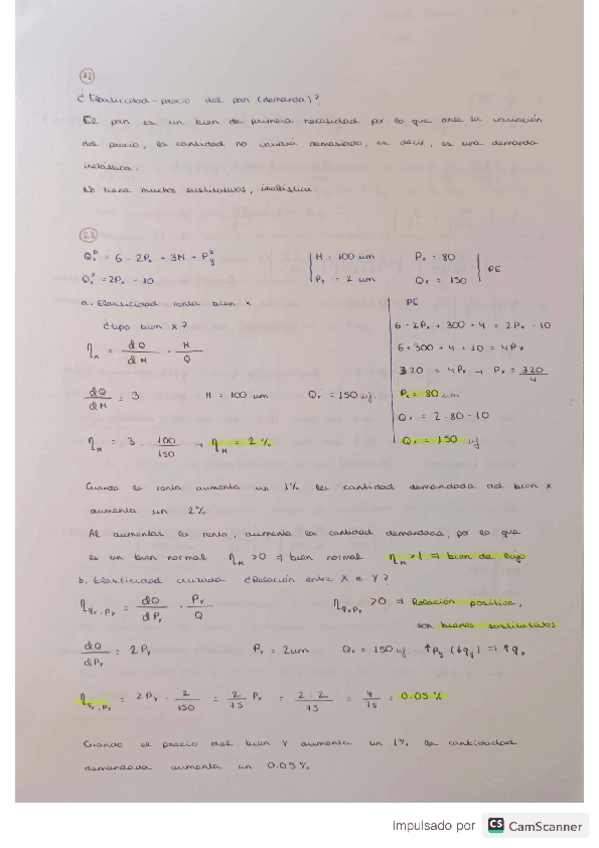 21
¿Elasticidad-precio del pan (demanda)?
El pan es un bien de primera necesidad por lo que ante la variación
del precio, la cantidad no variará demasiado, es decir, es una demanda
inelástica.
No tiene muchos sustitutivos, inelástica.
22
Qxᴰ = 6 - 2Px + 3M + Py² M = 100 um Px = 80
Qxˢ = 2Px - 10 Py = 2 um Qx = 150 PE
a. Elasticidad renta bien x PE
¿tipo bien x? 6 - 2Px + 300 + 4 = 2Px - 10
ηM = dQ/dM · M/Q 6 + 300 + 4 + 10 = 4Px
320 = 4Px → Px = 320/4
dQ/dM = 3 M = 100 um Qx = 150 uf. Px = 80 um
Qx = 2·80 - 10
ηM = 3 · 100/150 → ηM = 2% Qx = 150 uf
Cuando la renta aumenta un 1% la cantidad demandada del bien x
aumenta un 2%
Al aumentar la renta, aumenta la cantidad demandada, por lo que
es un bien normal ηM > 0 ⇒ bien normal ηM > 1 ⇒ bien de lujo
b. Elasticidad cruzada ¿Relación entre X e Y?
ηqx,Py = dQ/dPy · Py/Q ηqx,Py > 0 ⇒ Relación positiva,
son bienes sustitutivos
dQ/dPy = 2Py Py = 2um Qx = 150 uf. ↑Py (↓qy) ⇒ ↑qx
ηqx,Py = 2Py · 2/150 = 2/75 Py = 2·2/75 = 4/75 = 0.05%
Cuando el precio del bien Y aumenta un 1% la cantidad
demandada aumenta un 0.05%
Impulsado por CS CamScanner